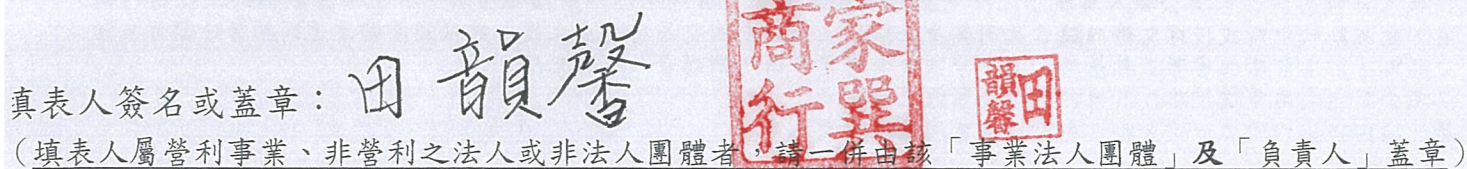 填表人簽名或蓋章：田韻馨
家巽商行
田韻馨
（填表人屬營利事業、非營利之法人或非法人團體者，請一併由該「事業法人團體」及「負責人」蓋章）